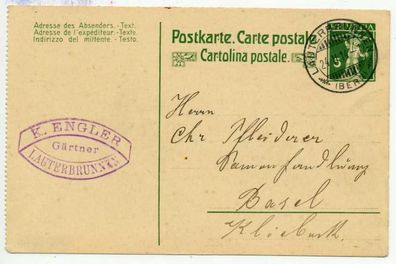 Adresse des Absenders. -Text.
Adresse de l'expéditeur. -Texte.
Indirizzo del mittente. -Testo.
Postkarte. Carte postale
Cartolina postale.
HELVETIA
5
LAUTER
(BERN)
K. ENGLER
Gärtner
LAUTERBRUNNEN
Herrn
Chr Pfleiderer
Samenhandlung
Basel